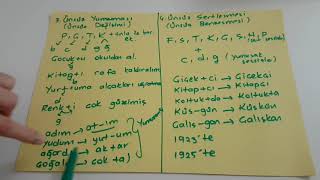 3. Ünsüz Yumuşaması
(Ünsüz Değişimi)
P, Ç, T, K + ünlü ile bar.
b c d g ğ
Çocuk+u okuldan al.
ğ
Kitap+ı rafa
Yurt+uma
d
Renk+i çok güzelmiş
g
adım → at-ım
yudum → yut-um
→ ak+ar
→ çok+a
Yumuşama
4. Ünsüz Sertleşmesi
(Ünsüz Benzeşmesi)
F, S, T, K, Ç, Ş, H, P
+
c, d, g (yumuşak sessizler)
Çiçek+ci → Çiçekçi
Kitap+cı → Kitapçı
Koltuk+da → Koltukta
Küs+gün → Küskün
Çalış+gan → Çalışkan
1923'te
1925'te